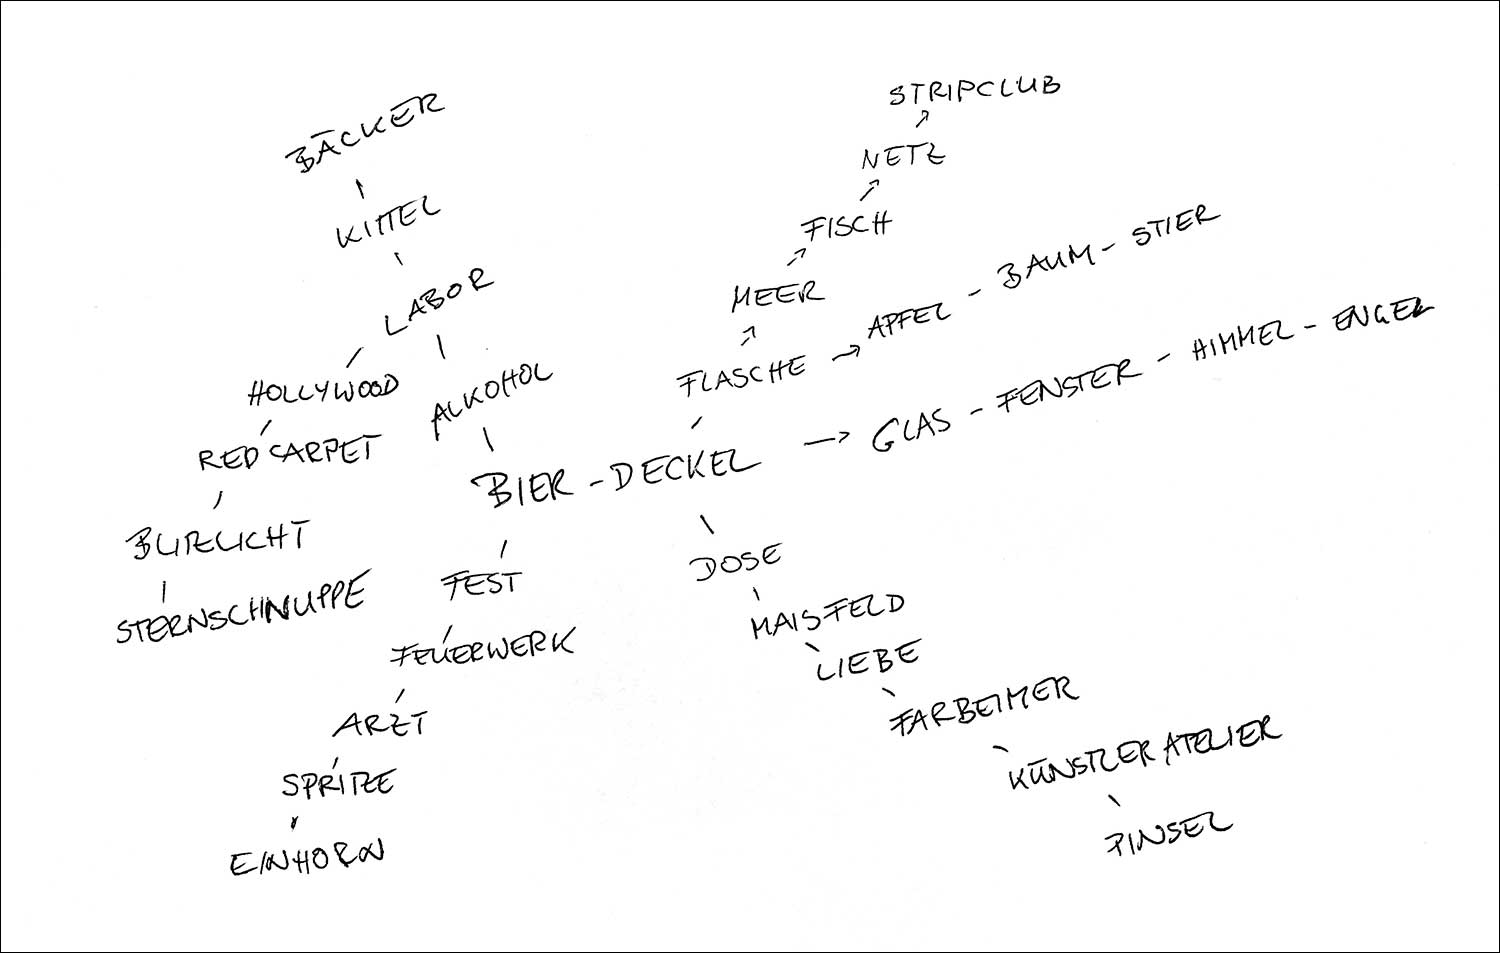 BÄCKER
KITTEL
LABOR
HOLLYWOOD
RED CARPET
BLITZLICHT
STERNSCHNUPPE
ALKOHOL
BIER - DECKEL → GLAS - FENSTER - HIMMEL - ENGEL
FEST
FEUERWERK
ARZT
SPRITZE
EINHORN
STRIPCLUB
NETZ
FISCH
MEER
FLASCHE → APFEL - BAUM - STIER
DOSE
MAISFELD
LIEBE
FARBEIMER
KÜNSTLER ATELIER
PINSEL